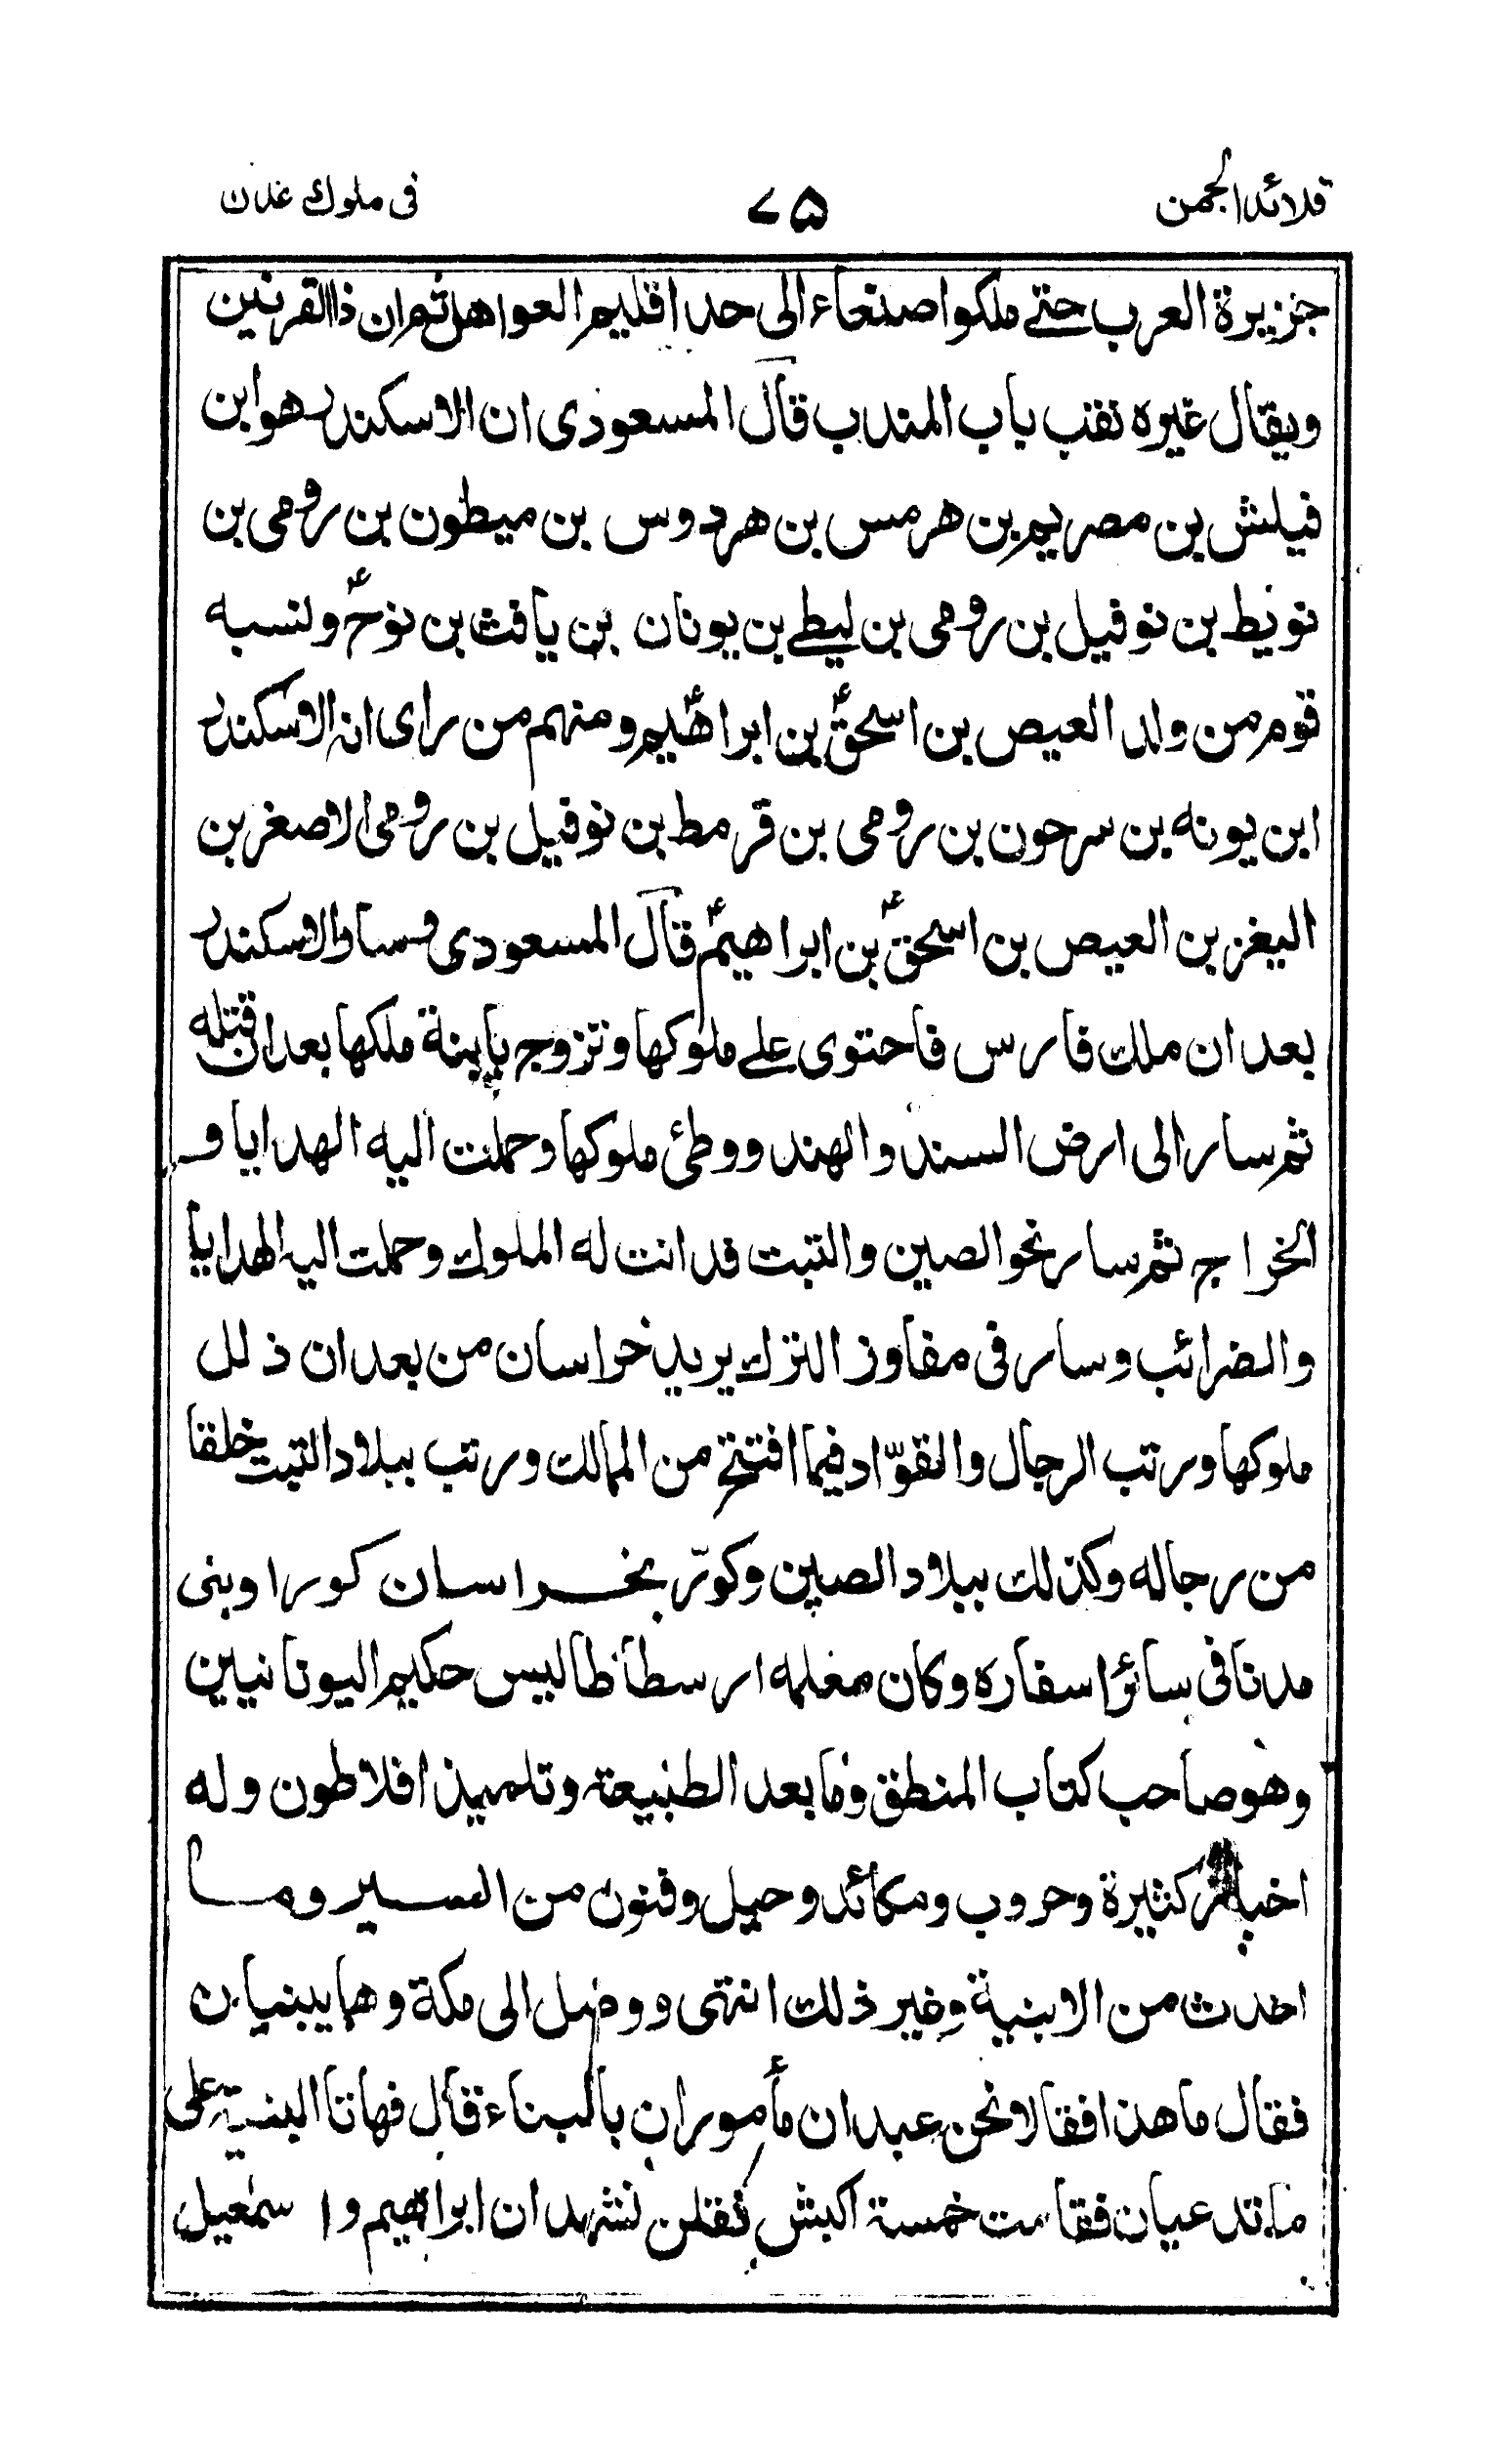 قلائد الجمن
٧٥
فى ملوك عدن
جزيرة العرب حتے ملكوا صنعاء الى حد اقليم العواهل ثم ان ذا القرنين
ويقال غيره نقب باب المندب قال المسعودى ان الاسكندر هو ابن
فيلش بن مصريم بن هرمس بن هردوس بن ميطون بن رومى بن
نويط بن نوفيل بن رومى بن ليطے بن يونان بن يافث بن نوحؑ ونسبه
قوم من ولد العيص بن اسحقؑ بن ابراهيمؑ ومنهم من راى انه الاسكندر
ابن يونه بن سرحون بن رومى بن قرمط بن نوفيل بن رومى الاصغر بن
اليغز بن العيص بن اسحقؑ بن ابراهيمؑ قال المسعودى وسار الاسكندر
بعد ان ملك فارس فاحتوى علے ملوكها وتزوج بابنة ملكها بعد ان قتله
ثم سار الى ارض السند والهند ووطئ ملوكها وحملت اليه الهدايا و
الخراج ثم سار نحو الصين والتبت فدانت له الملوك وحملت اليه الهدايا
والضرائب وسار فى مفاوز الترك يريد خراسان من بعد ان ذلل
ملوكها ورتب الرجال والقوّاد فيما افتتح من الممالك ورتب ببلاد التبت خلقا
من رجاله وكذلك ببلاد الصين وكوّر بخراسان كورا وبنى
مدنا فى سائر اسفاره وكان معلمه ارسطاطاليس حكيم اليونانيين
وهو صاحب كتاب المنطق وما بعد الطبيعة وتلميذ افلاطون وله
اخبار كثيرة وحروب ومكائد وحيل وفنون من السير وما
احدث من الابنية وغير ذلك انتهى ووصل الى مكة وهما يبنيان
فقال ما هذا فقالا نحن عبدان مأموران بالبناء قال فهاتا البنية على
ما تدعيان فقامت خمسة اكبش فقلن نشهد ان ابراهيم واسمعيل